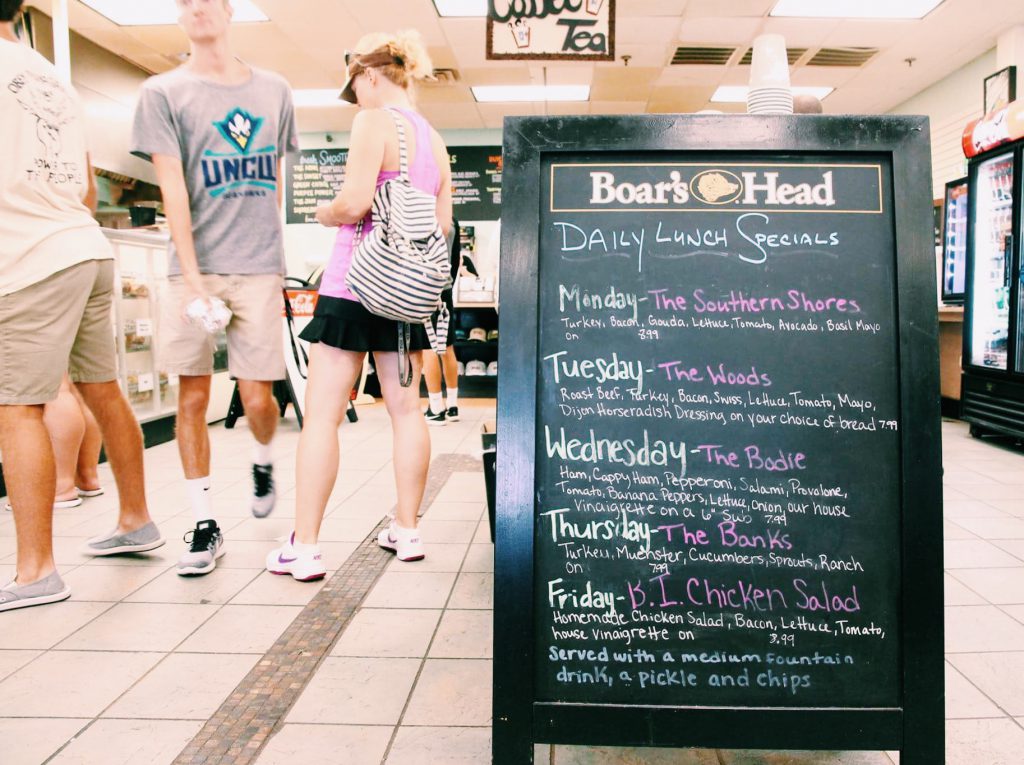 Coffee
Tea
Boar's Head
Daily Lunch Specials
Monday- The Southern Shores
Turkey, Bacon, Gouda, Lettuce, Tomato, Avocado, Basil Mayo
on 8.99
Tuesday- The Woods
Roast Beef, Turkey, Bacon, Swiss, Lettuce, Tomato, Mayo,
Dijon Horseradish Dressing on your choice of bread 7.99
Wednesday- The Bodie
Ham, Cappy Ham, Pepperoni, Salami, Provolone,
Tomato, Banana Peppers, Lettuce, Onion, our house
vinaigrette on a 6" Sub 7.99
Thursday- The Banks
Turkey, Muenster, Cucumbers, Sprouts, Ranch
on 7.99
Friday- B.I. Chicken Salad
Homemade Chicken Salad, Bacon, Lettuce, Tomato,
house vinaigrette on 8.99
Served with a medium fountain
drink, a pickle and chips
UNCW
Smoothies